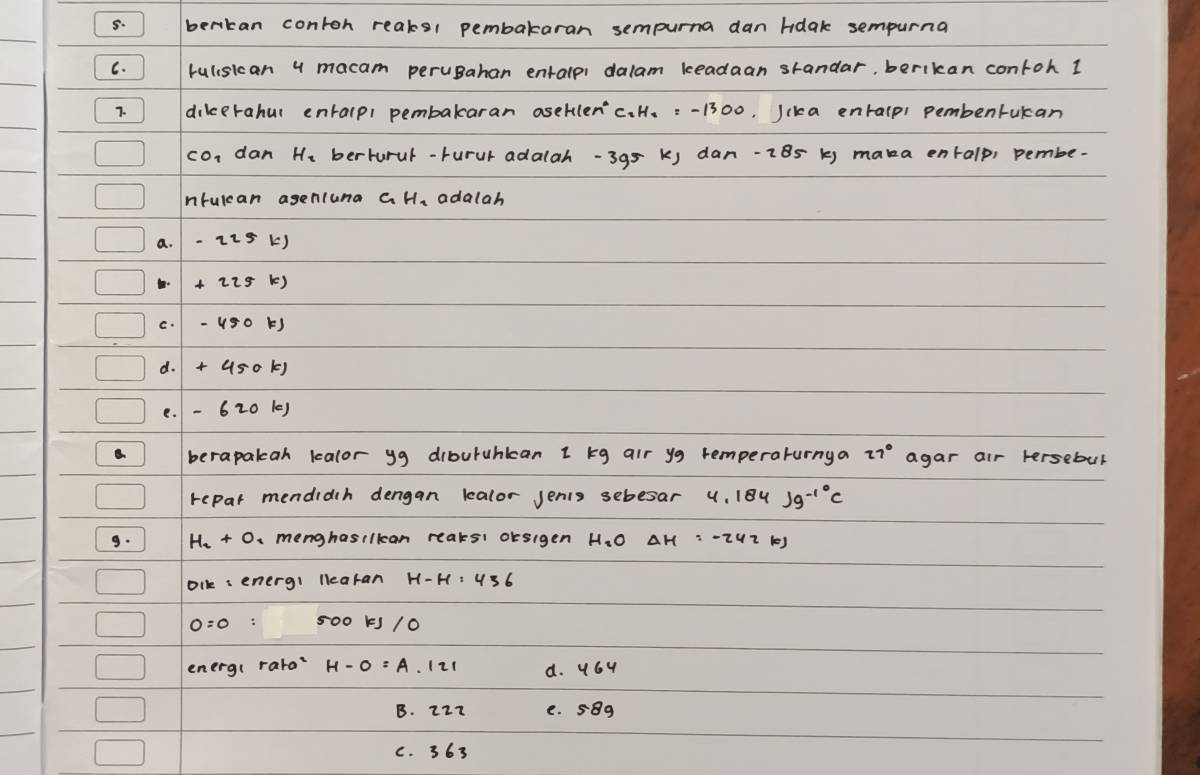 5. berikan contoh reaksi pembakaran sempurna dan tidak sempurna
6. tuliskan 4 macam peruBahan entalpi dalam keadaan standar. berikan contoh 1
7. diketahui entalpi pembakaran asetilen C₂H₂ = -1300. Jika entalpi Pembentukan
CO₂ dan H₂ berturut-turut adalah -395 kJ dan -285 kJ maka entalpi pembe-
ntukan C₂H₂ adalah
a. - 225 kJ
b. + 225 kJ
c. - 450 kJ
d. + 450 kJ
e. - 620 kJ
8. berapakah kalor yg dibutuhkan 1 kg air yg temperaturnya 27° agar air tersebut
tepat mendidih dengan kalor jenis sebesar 4,184 Jg⁻¹°C
9. H₂ + O₂ menghasilkan reaksi oksigen H₂O ΔH = -242 kJ
Dik : energi ikatan H-H : 436
O=O : 500 kJ /O
energi rata² H-O = A. 121 d. 464
B. 222 e. 589
C. 363